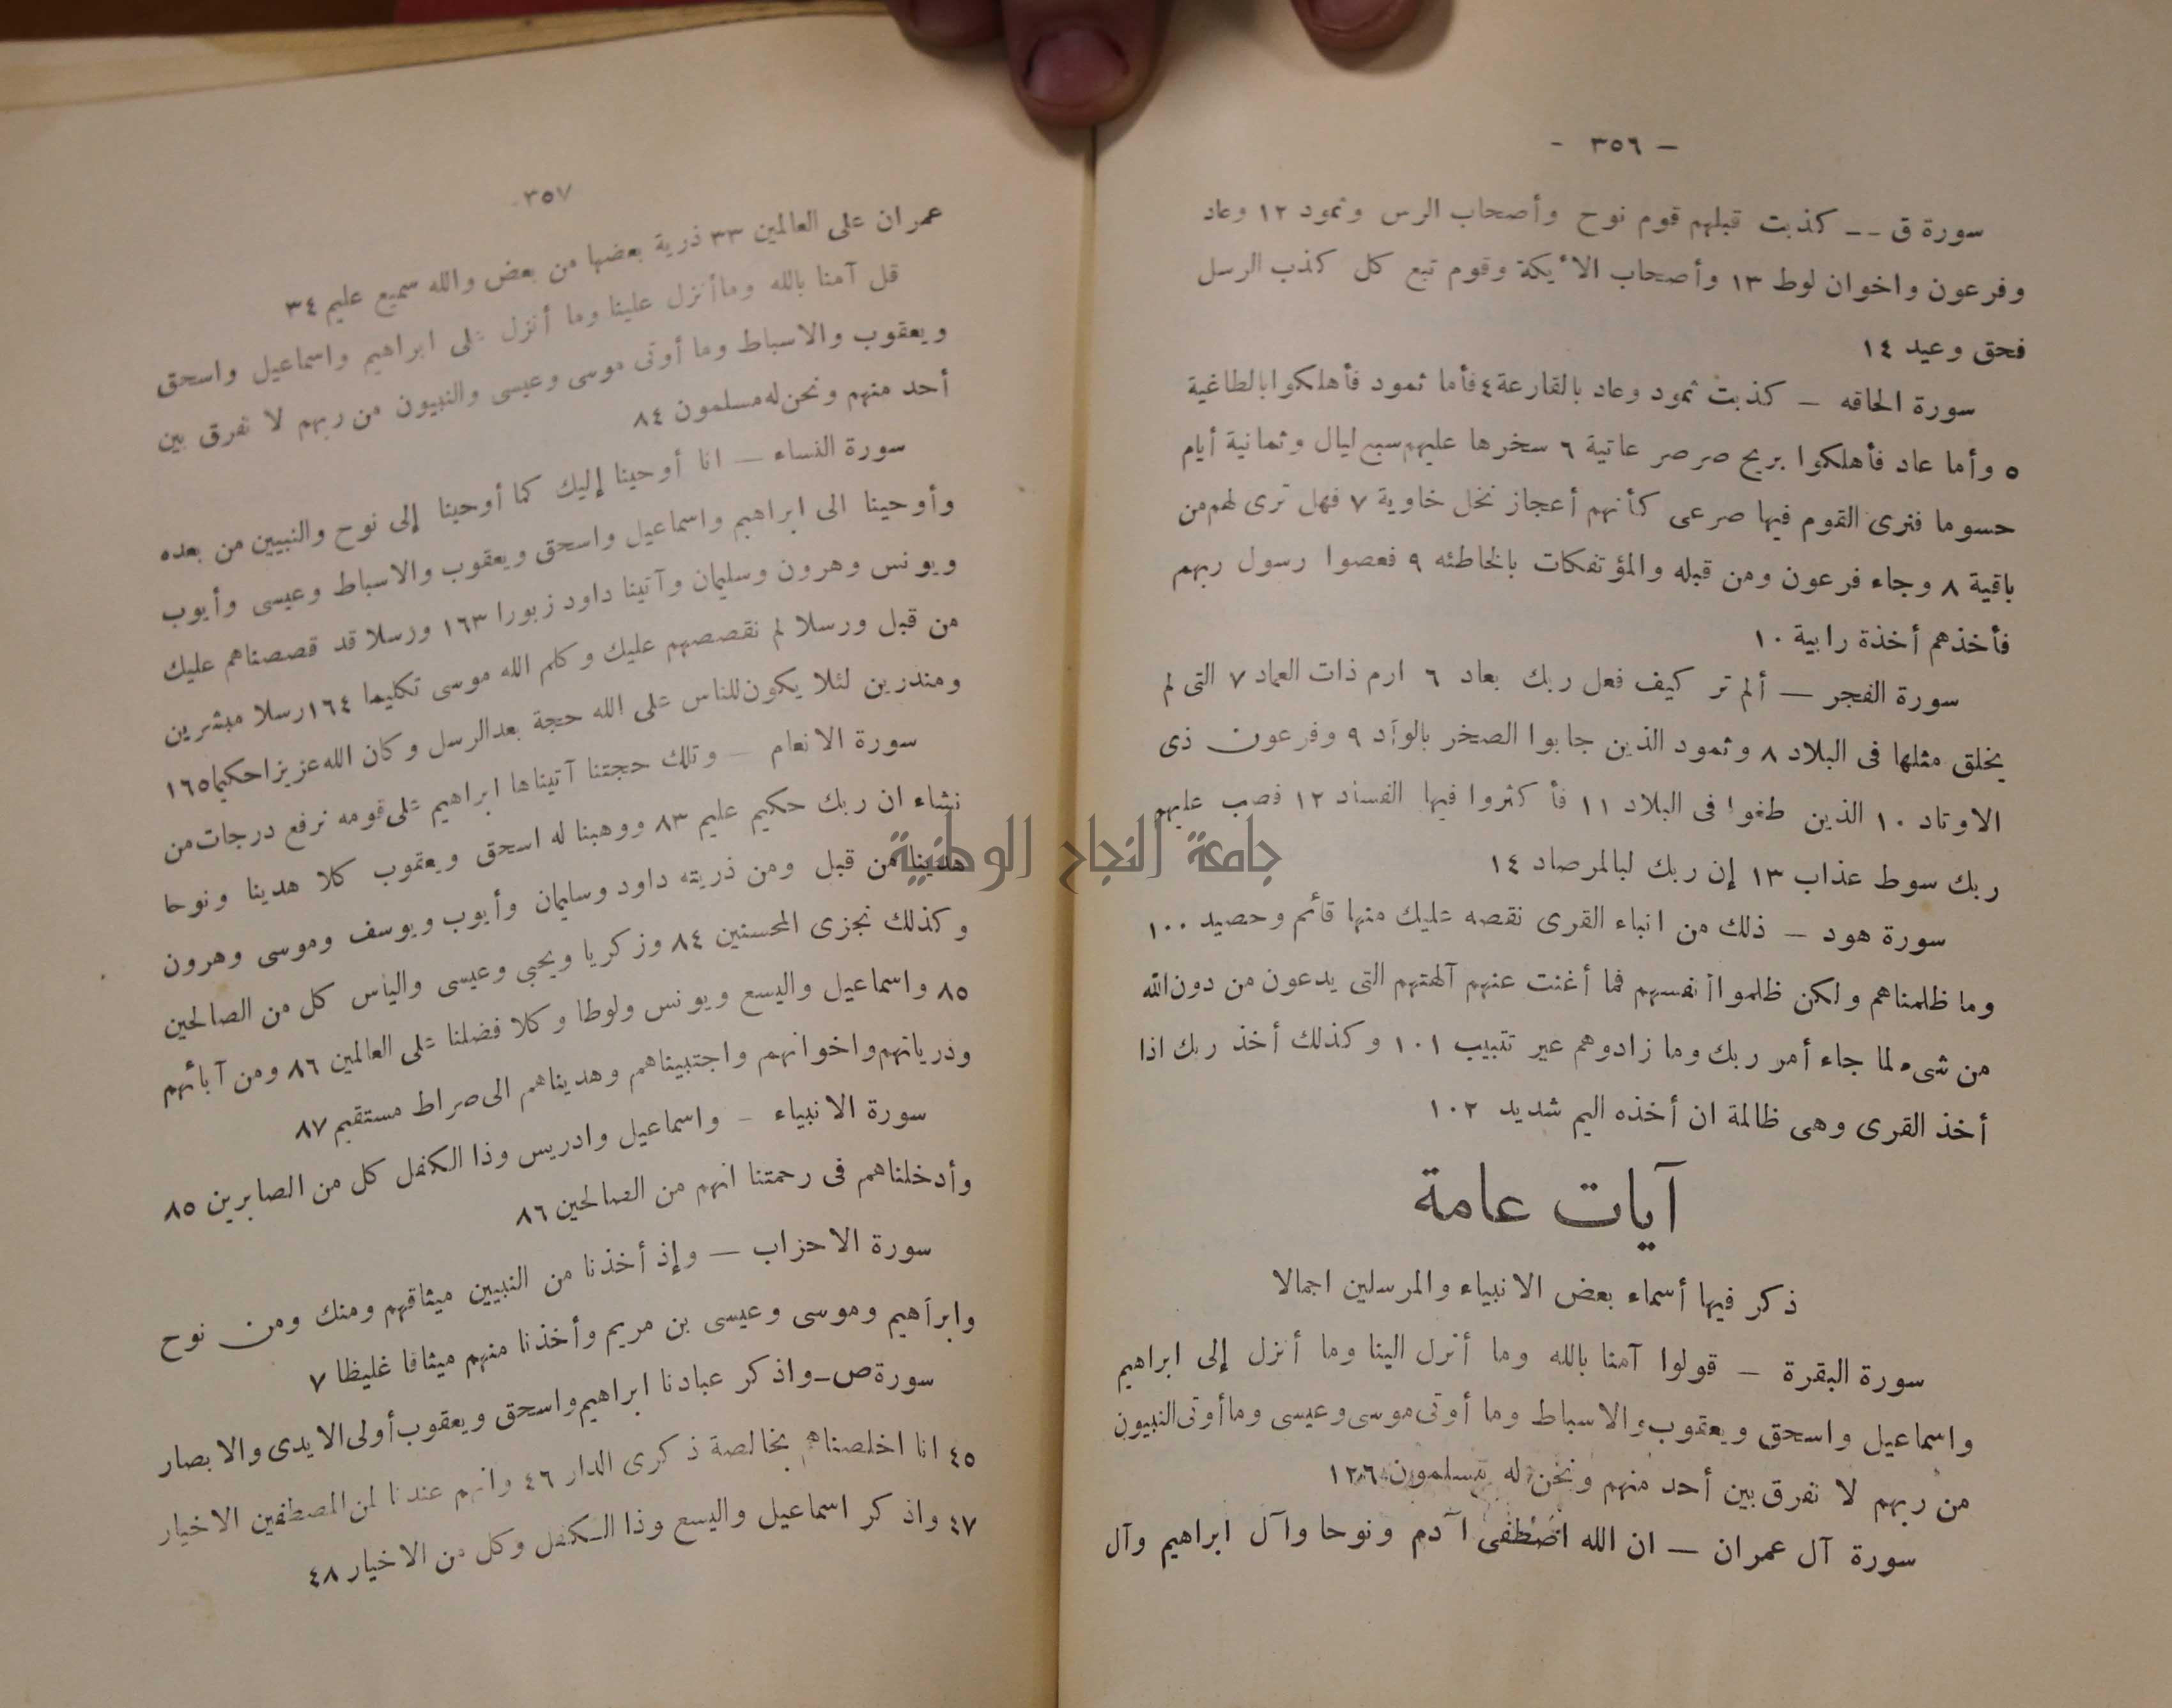 — ٣٥٦ -
سورة ق -- كذبت قبلهم قوم نوح وأصحاب الرس وثمود ١٢ وعاد
وفرعون واخوان لوط ١٣ وأصحاب الأيكة وقوم تبع كل كذب الرسل
فحق وعيد ١٤
سورة الحاقه — كذبت ثمود وعاد بالقارعة ٤ فأما ثمود فأهلكوا بالطاغية
٥ وأما عاد فأهلكوا بريح صرصر عاتية ٦ سخرها عليهم سبع ليال وثمانية أيام
حسوما فترى القوم فيها صرعى كأنهم أعجاز نخل خاوية ٧ فهل ترى لهم من
باقية ٨ وجاء فرعون ومن قبله والمؤتفكات بالخاطئه ٩ فعصوا رسول ربهم
فأخذهم أخذة رابية ١٠
سورة الفجر — ألم تر كيف فعل ربك بعاد ٦ ارم ذات العماد ٧ التى لم
يخلق مثلها فى البلاد ٨ وثمود الذين جابوا الصخر بالواد ٩ وفرعون ذى
الاوتاد ١٠ الذين طغوا فى البلاد ١١ فأكثروا فيها الفساد ١٢ فصب عليهم
ربك سوط عذاب ١٣ إن ربك لبالمرصاد ١٤
سورة هود — ذلك من انباء القرى نقصه عليك منها قائم وحصيد ١٠٠
وما ظلمناهم ولكن ظلموا أنفسهم فما أغنت عنهم آلهتهم التى يدعون من دون الله
من شىء لما جاء أمر ربك وما زادوهم غير تتبيب ١٠١ وكذلك أخذ ربك اذا
أخذ القرى وهى ظالمة ان أخذه اليم شديد ١٠٢
آيات عامة
ذكر فيها أسماء بعض الانبياء والمرسلين اجمالا
سورة البقرة — قولوا آمنا بالله وما أنزل الينا وما أنزل إلى ابراهيم
واسماعيل واسحق ويعقوب والاسباط وما أوتى موسى وعيسى وما أوتى النبيون
من ربهم لا نفرق بين أحد منهم ونحن له مسلمون ١٣٦
سورة آل عمران — ان الله اصطفى آدم ونوحا وآل ابراهيم وآل
٣٥٧
عمران على العالمين ٣٣ ذرية بعضها من بعض والله سميع عليم ٣٤
قل آمنا بالله وما أنزل علينا وما أنزل على ابراهيم واسماعيل واسحق
ويعقوب والاسباط وما أوتى موسى وعيسى والنبيون من ربهم لا نفرق بين
أحد منهم ونحن له مسلمون ٨٤
سورة النساء — انا أوحينا إليك كما أوحينا إلى نوح والنبيين من بعده
وأوحينا الى ابراهيم واسماعيل واسحق ويعقوب والاسباط وعيسى وأيوب
ويونس وهرون وسليمان وآتينا داود زبورا ١٦٣ ورسلا قد قصصناهم عليك
من قبل ورسلا لم نقصصهم عليك وكلم الله موسى تكليما ١٦٤ رسلا مبشرين
ومنذرين لئلا يكون للناس على الله حجة بعد الرسل وكان الله عزيزا حكيما ١٦٥
سورة الانعام — وتلك حجتنا آتيناها ابراهيم على قومه نرفع درجات من
نشاء ان ربك حكيم عليم ٨٣ ووهبنا له اسحق ويعقوب كلا هدينا ونوحا
هدينا من قبل ومن ذريته داود وسليمان وأيوب ويوسف وموسى وهرون
وكذلك نجزى المحسنين ٨٤ وزكريا ويحيى وعيسى والياس كل من الصالحين
٨٥ واسماعيل واليسع ويونس ولوطا وكلا فضلنا على العالمين ٨٦ ومن آبائهم
وذرياتهم واخوانهم واجتبيناهم وهديناهم الى صراط مستقيم ٨٧
سورة الانبياء - واسماعيل وادريس وذا الكفل كل من الصابرين ٨٥
وأدخلناهم فى رحمتنا انهم من الصالحين ٨٦
سورة الاحزاب — وإذ أخذنا من النبيين ميثاقهم ومنك ومن نوح
وابراهيم وموسى وعيسى بن مريم وأخذنا منهم ميثاقا غليظا ٧
سورة ص ـ واذكر عبادنا ابراهيم واسحق ويعقوب أولى الايدى والابصار
٤٥ انا اخلصناهم بخالصة ذكرى الدار ٤٦ وانهم عندنا لمن المصطفين الاخيار
٤٧ واذكر اسماعيل واليسع وذا الكفل وكل من الاخيار ٤٨
جامعة النجاح الوطنية